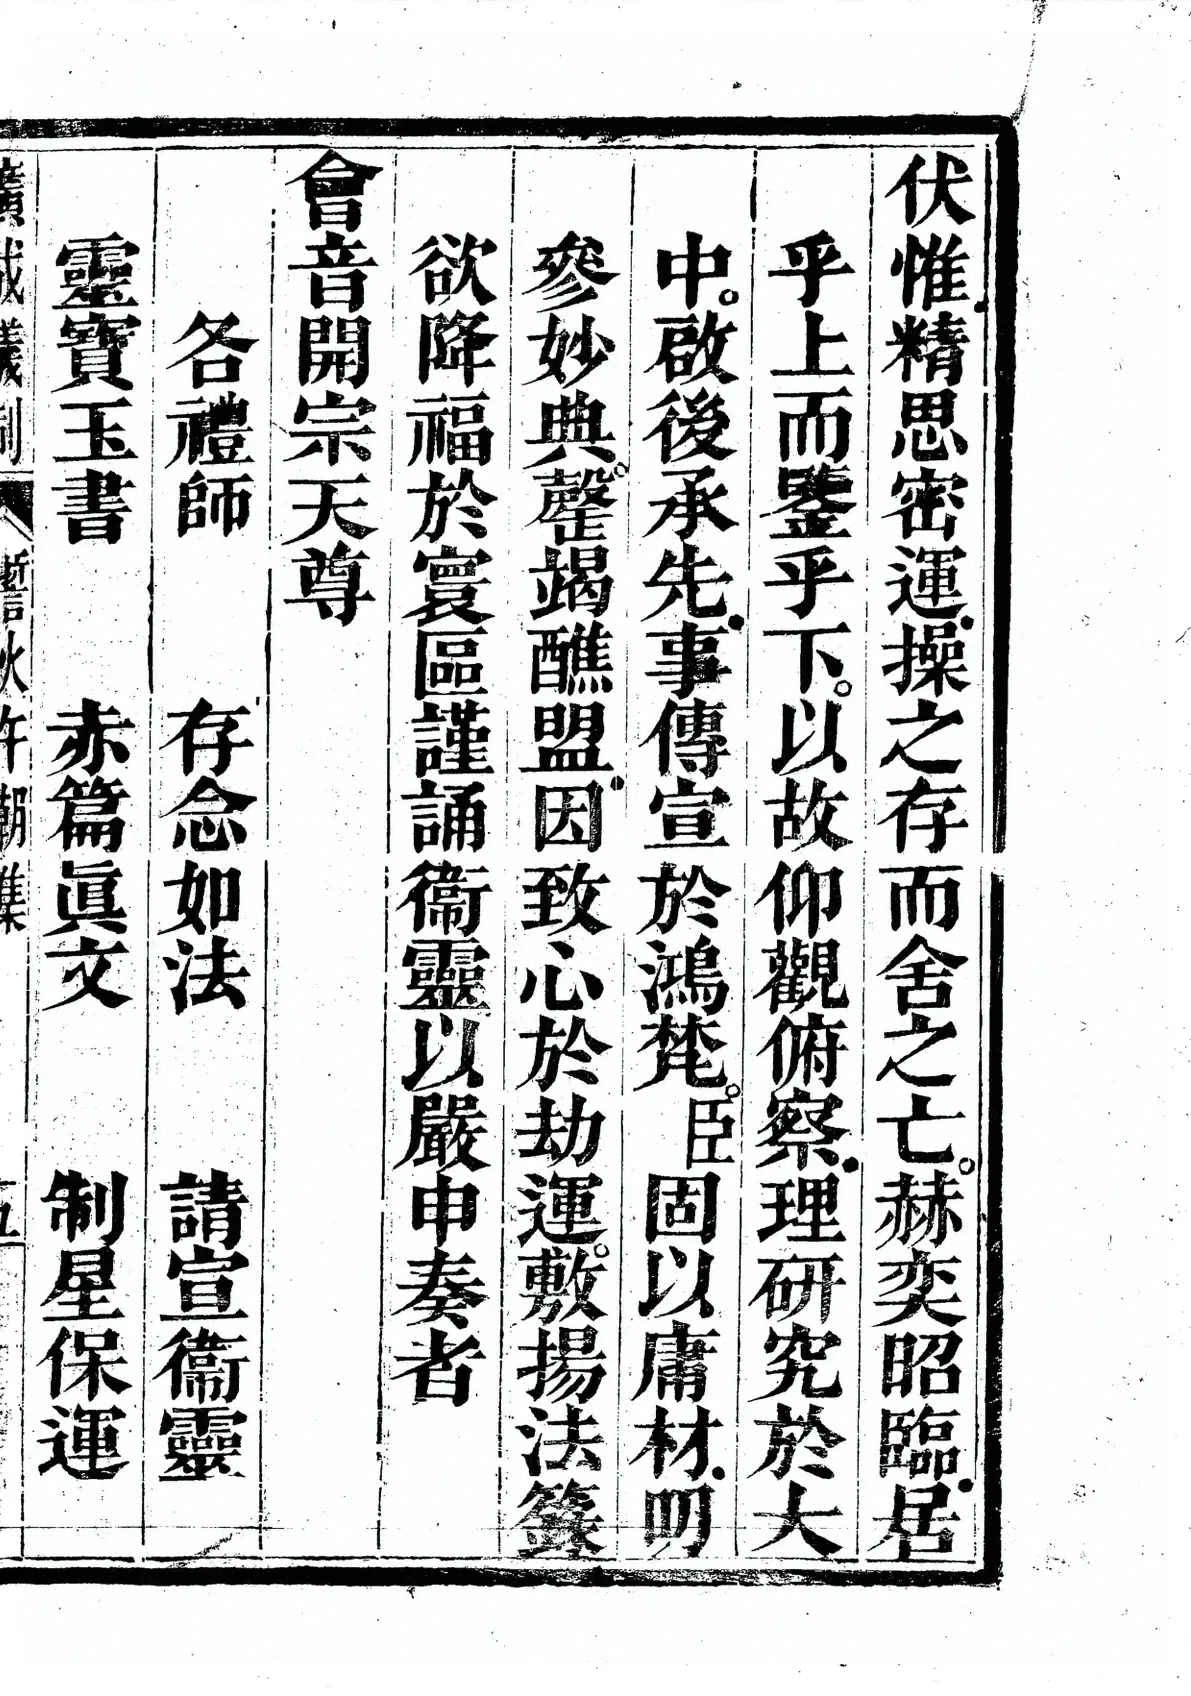 伏惟精思密運操之存而舍之亡。赫奕昭臨居
乎上而鑒乎下。以故仰觀俯察理研究於大
中。啟後承先事傳宣於鴻梵。臣固以庸材叨
參妙典。罄竭醮盟因致心於劫運。敷揚法籙
欲降福於寰區謹誦衞靈以嚴申奏者
會音開宗天尊
各禮師　存念如法　請宣衞靈
靈寶玉書　赤篇眞文　制星保運
廣成儀制　午朝集　五